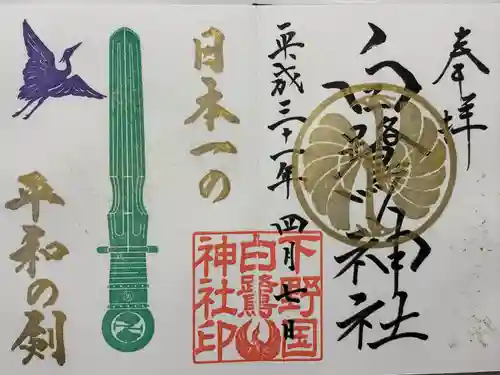 奉拝
白鷺神社
平成三十一年四月七日
下野国
白鷺
神社印
日本一の
平和の剣